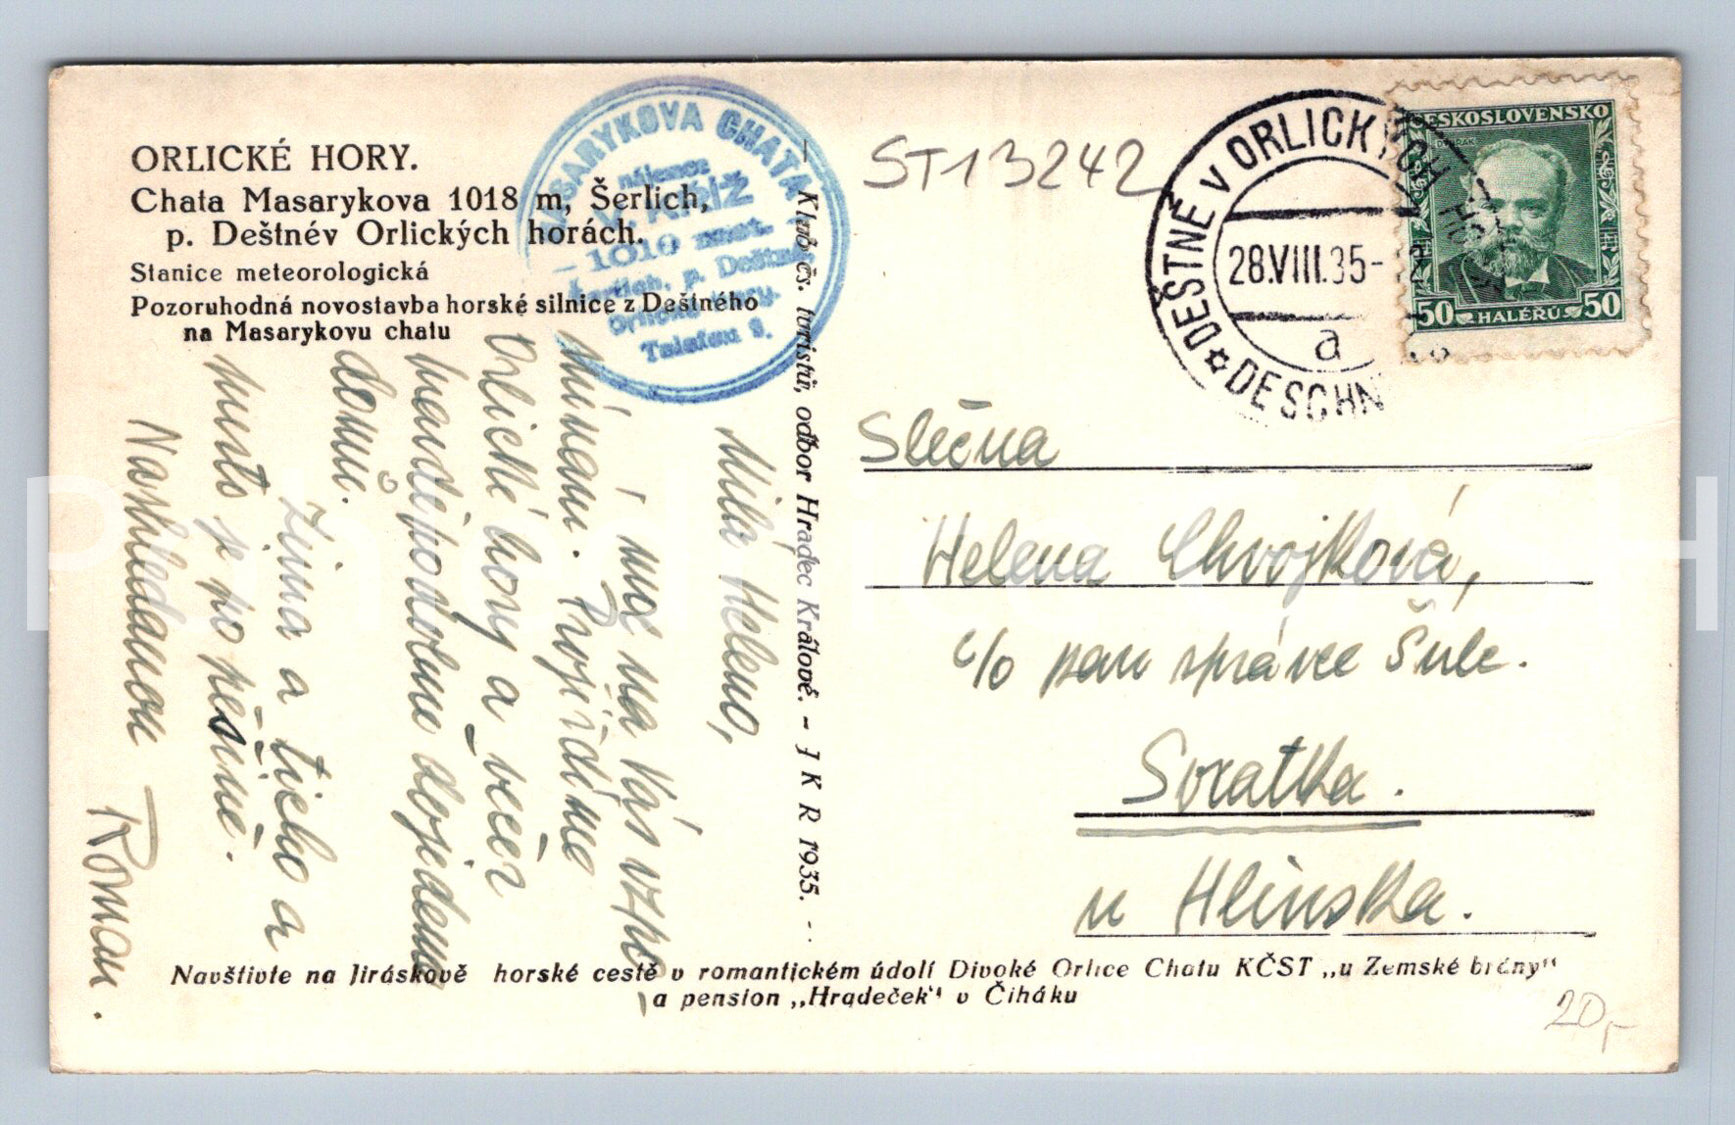 ORLICKÉ HORY.
Chata Masarykova 1018 m, Šerlich,
p. Deštnév Orlických horách.
Stanice meteorologická
Pozoruhodná novostavba horské silnice z Deštného
na Masarykovu chatu
MASARYKOVA CHATA
nájemce
KŘÍŽ
1010 m
Šerlich, p. Deštné
Orlické hory.
Telefon 2.
ST13242
DEŠTNÉ V ORLICKÝCH HOR
28.VIII.35-
a
DESCHN
ČESKOSLOVENSKO
DVOŘÁK
50 HALÉŘŮ 50
Klub čs. turistů, odbor Hradec Králové. – J K R 1935.
Milá Heleno,
i moc na Vás vzpo-
mínám. Projíždíme
Orlické hory a večer
dojedeme
domů.
Zima a ticho a
pusto je po pěšině.
Nashledanou
Roman.
Slečna
Helena Chvojková,
c/o pan správce Šulc.
Svratka.
u Hlinska.
Navštivte na Jiráskově horské cestě v romantickém údolí Divoké Orlice Chatu KČST „u Zemské brány"
a pension „Hradeček" v Čiháku
20,-